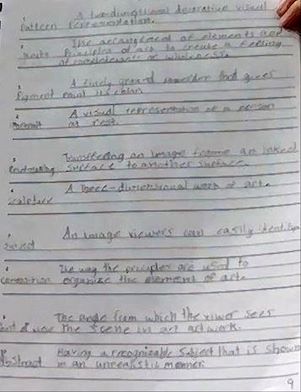 A two-dimensional decorative visual
Pattern representation.
The arrangement of elements and
Principles of art to create a feeling
of completeness or wholeness.
A finely ground powder that gives
Pigment paint its color.
A visual representation of a person
at rest.
Transferring an image from an inked
surface to another surface.
A three-dimensional work of art.
sculpture
An image viewers can easily identify
The way the principles are used to
composition organize the elements of art.
The angle from which the viewer sees
view the scene in an artwork.
Having a recognizable subject that is shown
Abstract in an unrealistic manner.
9